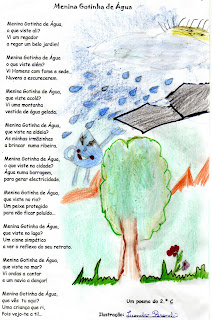 Menina Gotinha de Água
Menina Gotinha de Água,
o que viste ali?
Vi um regador
a regar um belo jardim!
Menina Gotinha de Água,
o que viste além?
Vi Homens com fome e sede,
Nuvens a escurecerem.
Menina Gotinha de Água,
que viste acolá?
Vi uma montanha
vestida de água gelada.
Menina Gotinha de Água,
que viste na aldeia?
As minhas irmãzinhas
a brincar numa ribeira.
Menina Gotinha de Água,
o que viste na cidade?
Água numa barragem,
para gerar electricidade.
Menina Gotinha de Água,
que viste no rio?
Um peixe protegido
para não ficar poluído.
Menina Gotinha de Água,
que viste no lago?
Um cisne simpático
a ver o reflexo do seu retrato.
Menina Gotinha de Água,
que viste no mar?
Vi ondas a cantar
e um navio a dançar!
Menina Gotinha de Água,
que vês tu aqui?
Uma criança que ri,
Pois vejo-te a ti...
Um poema do 2.º C
Ilustração: